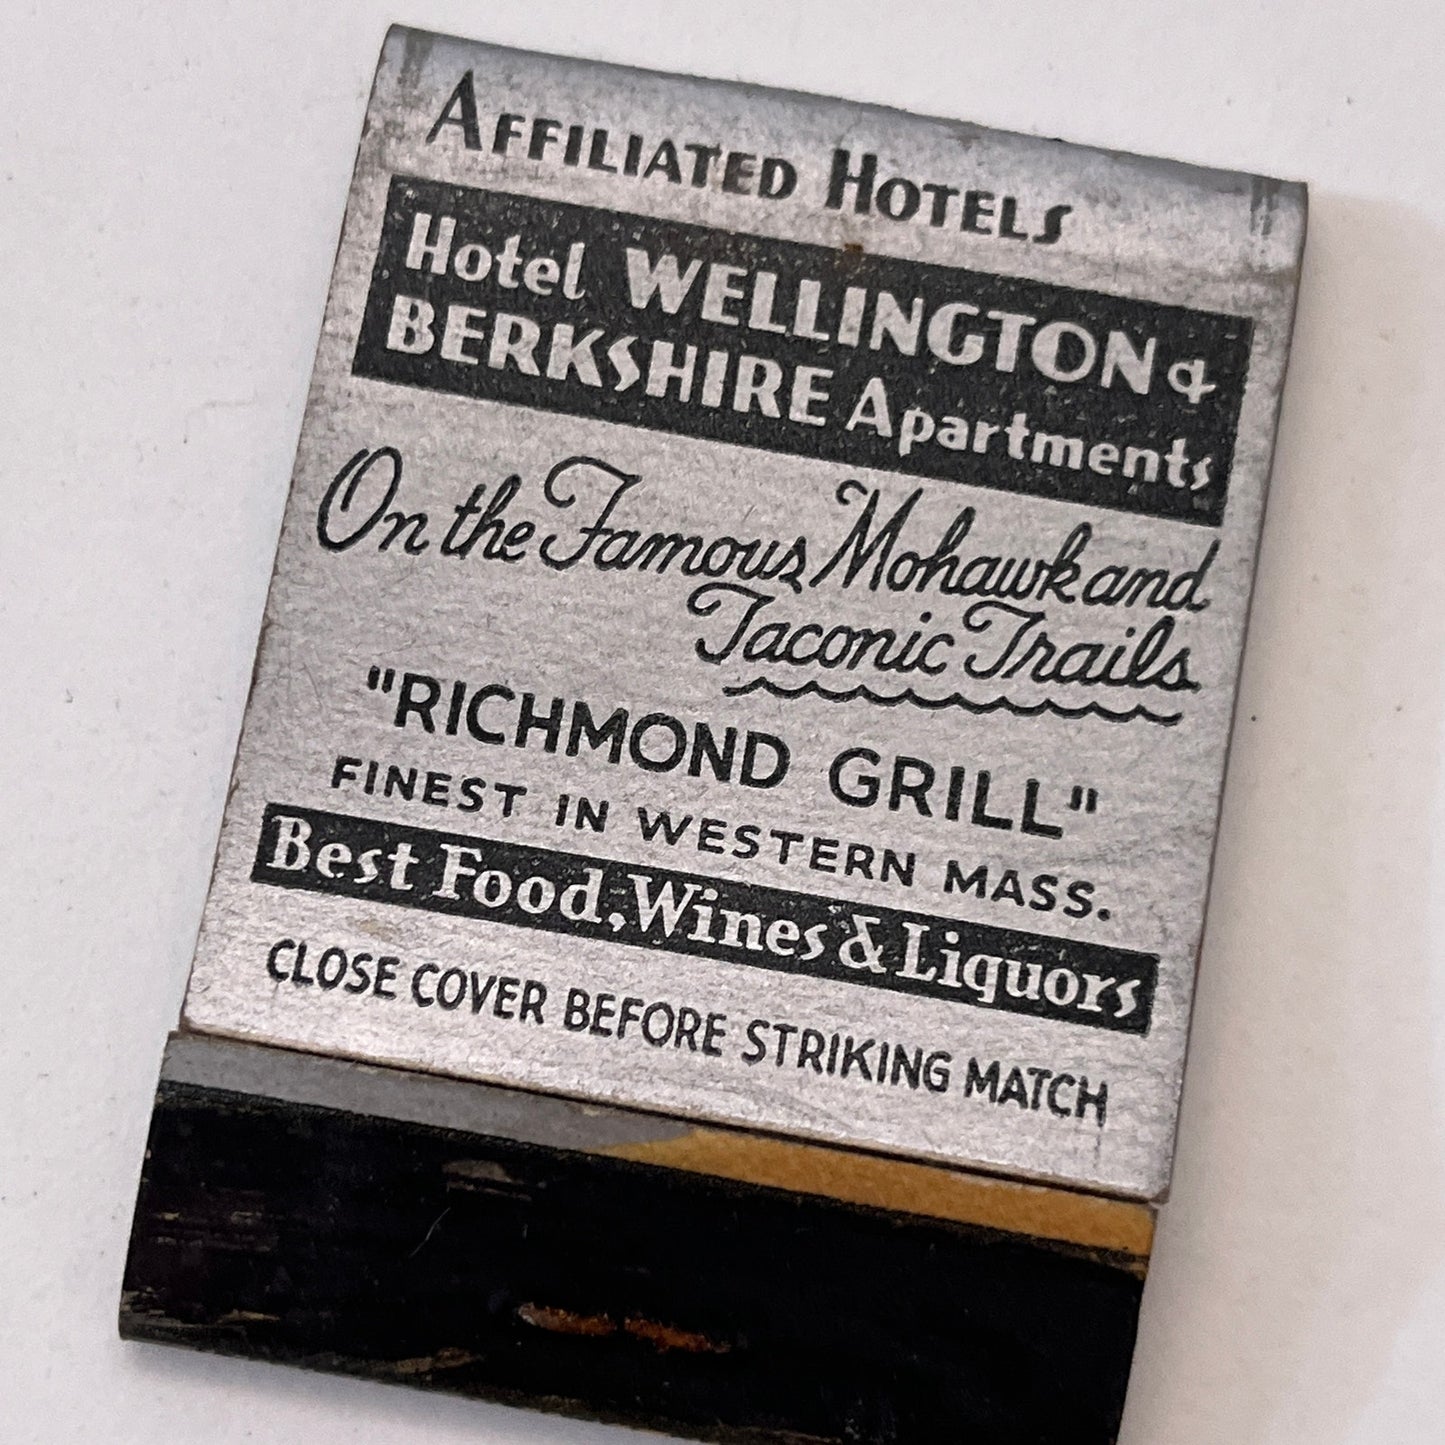 AFFILIATED HOTELS
Hotel WELLINGTON &
BERKSHIRE Apartments
On the Famous Mohawk and
Taconic Trails
"RICHMOND GRILL"
FINEST IN WESTERN MASS.
Best Food, Wines & Liquors
CLOSE COVER BEFORE STRIKING MATCH